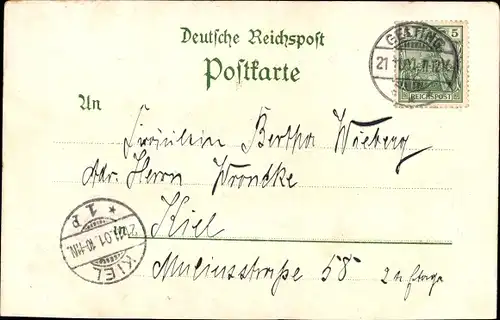 Deutsche Reichspost
Postkarte
GELTING
21 11 01
5
REICHSPOST
An
Fräulein Bertha Wieberg
Adr. Herrn Wroncke
Kiel
Muliusstraße 58 2n Etage
* 1 P
21.11.01.10-11N.
KIEL